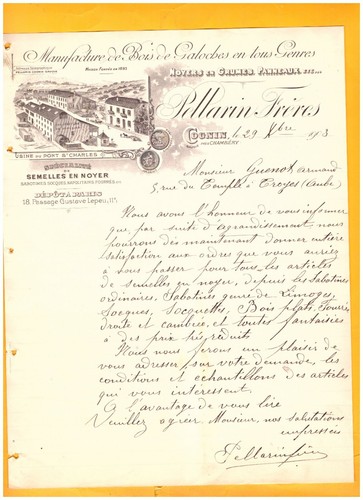 Manufacture de Bois de Galoches en tous Genres
Maison Fondée en 1892
Noyers en Grumes, Panneaux, etc...
Pellarin Frères
Cognin, le 29 9bre 1913
près Chambéry
Usine du Port St Charles
Spécialité
de
Semelles en Noyer
Sabotines, Socques, Napolitains, Fourrés, etc
Dépôt à Paris
18, Passage Gustave Lepeu, 11e
Monsieur Guenot, armand
5, rue du Temple à Troyes (Aube)
Nous avons l'honneur de vous informer
que, par suite d'agrandissement nous
pourrons dès maintenant donner entière
satisfaction aux ordres que vous auriez
à nous passer pour tous les articles
de semelles en noyer, depuis les Sabotines
ordinaires, Sabotines genre de Limoges,
Socques, Socquettes, Bois plats, Fourrés,
Droite et cambrée, et toutes fantaisies
à des prix très réduits
Nous nous ferons un plaisir de
vous adresser, sur votre demande, les
conditions et échantillons des articles
qui vous intéressent.
A l'avantage de vous lire
Veuillez agréer Monsieur, nos salutations
empressées
Pellarin frères